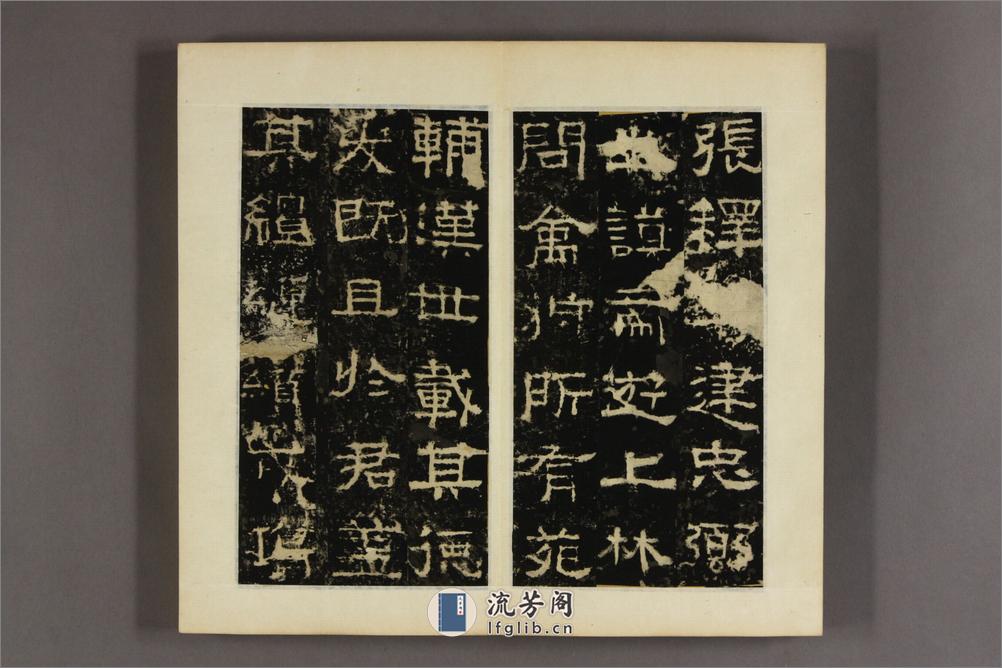 張釋▢建忠弼
之謨帝遊上林
問禽狩所有苑
輔漢世載其德
爰既且於君蓋
其繵縺纘戎鴻
流芳阁
lfglib.cn